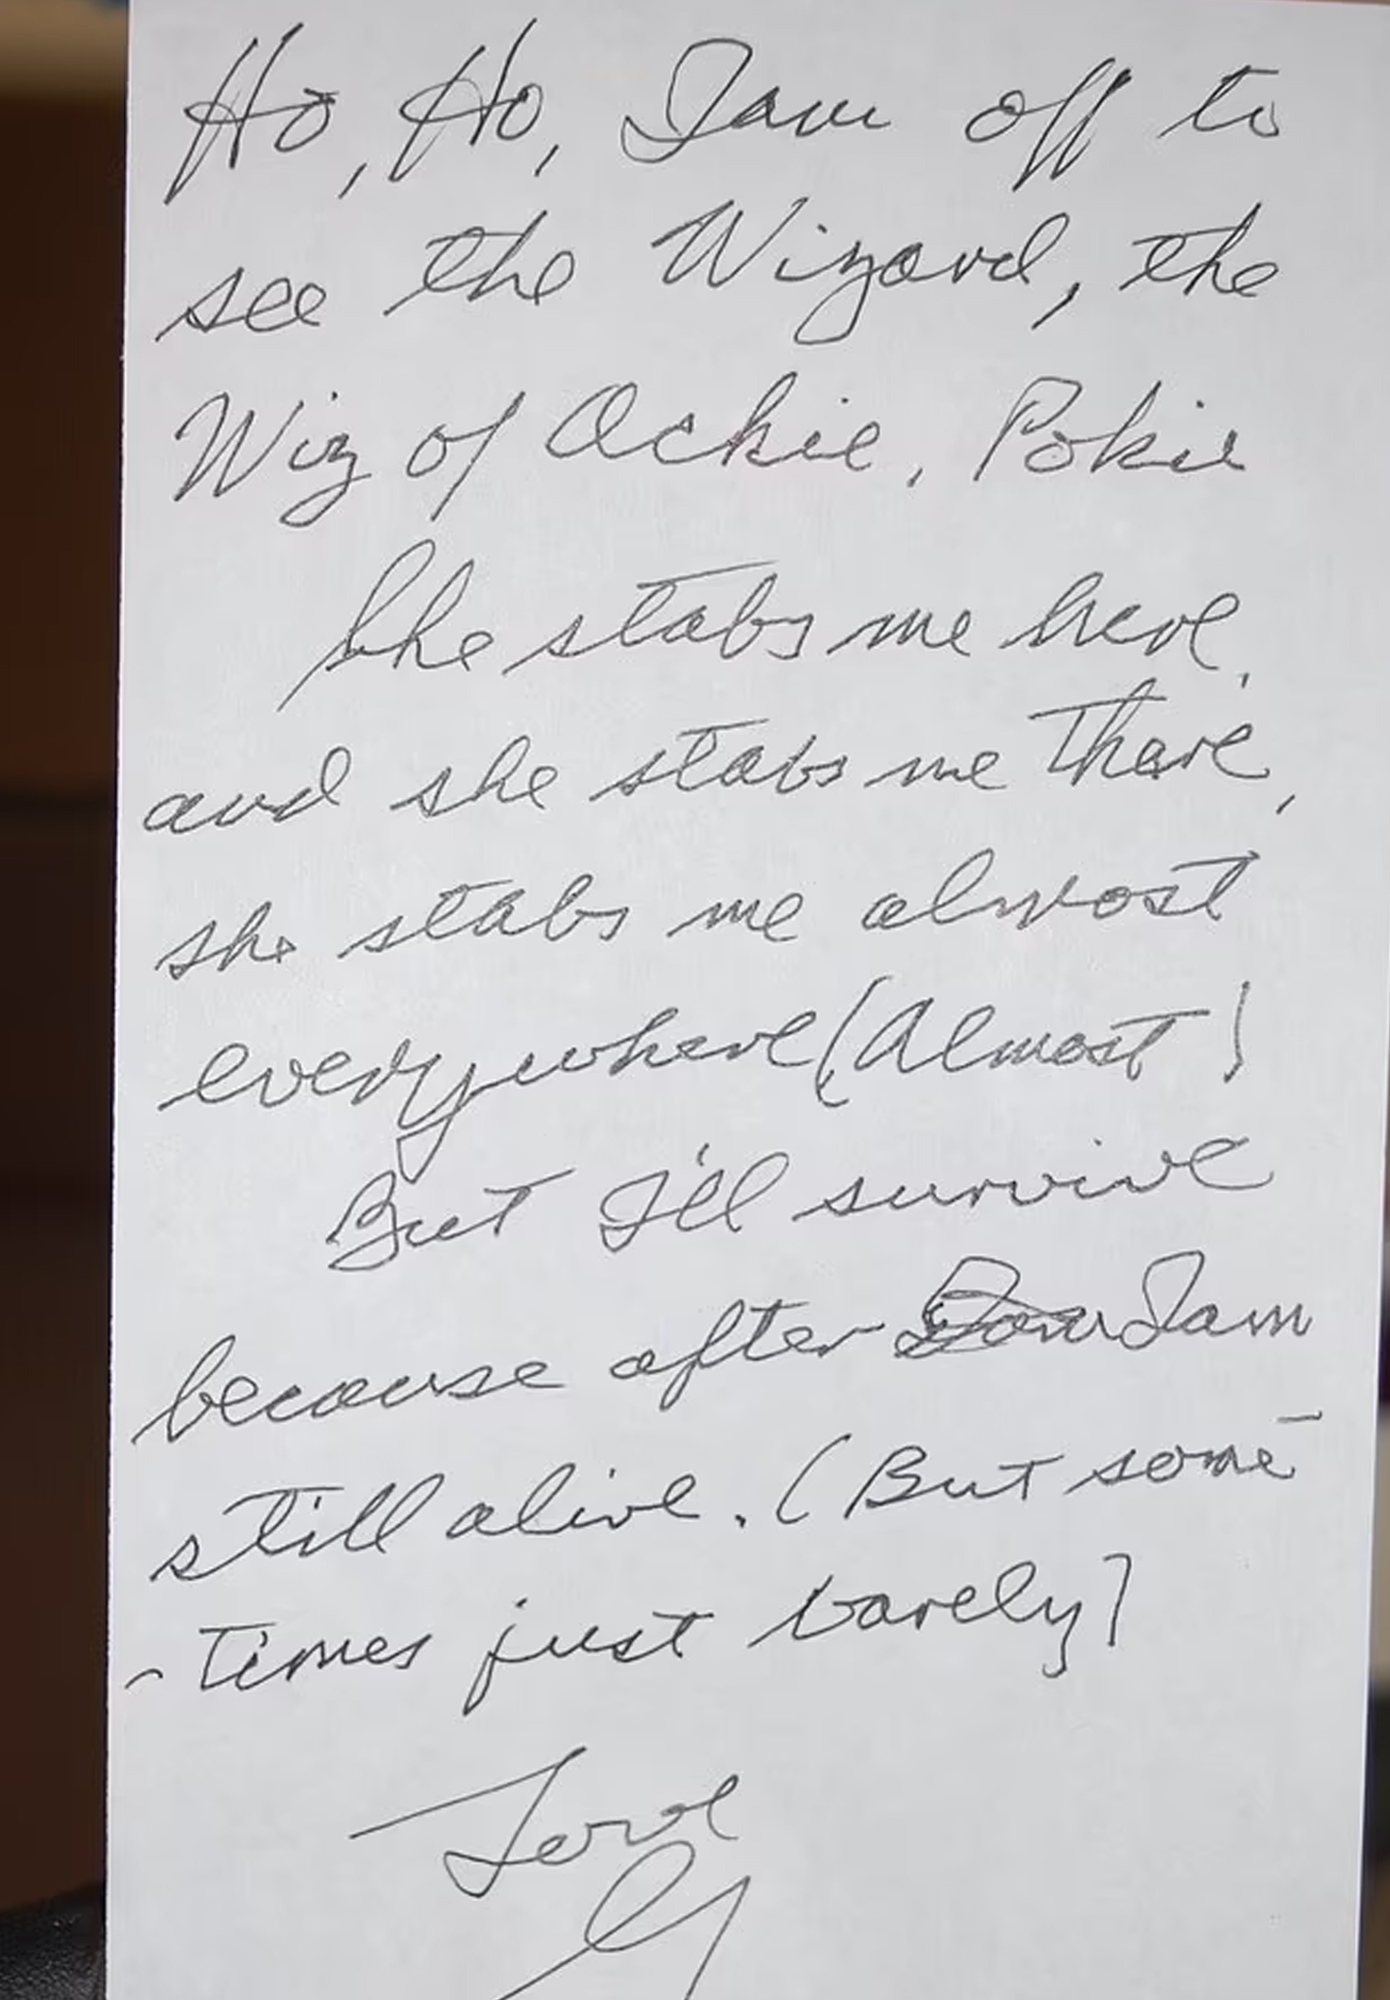 Ho, Ho, I am off to
see the Wizard, the
Wiz of Ackie, Pokie
She stabs me here,
and she stabs me there,
she stabs me almost
everywhere (Almost)
But I'll survive
because after I am
still alive. (But some-
-times just barely)
Love
G